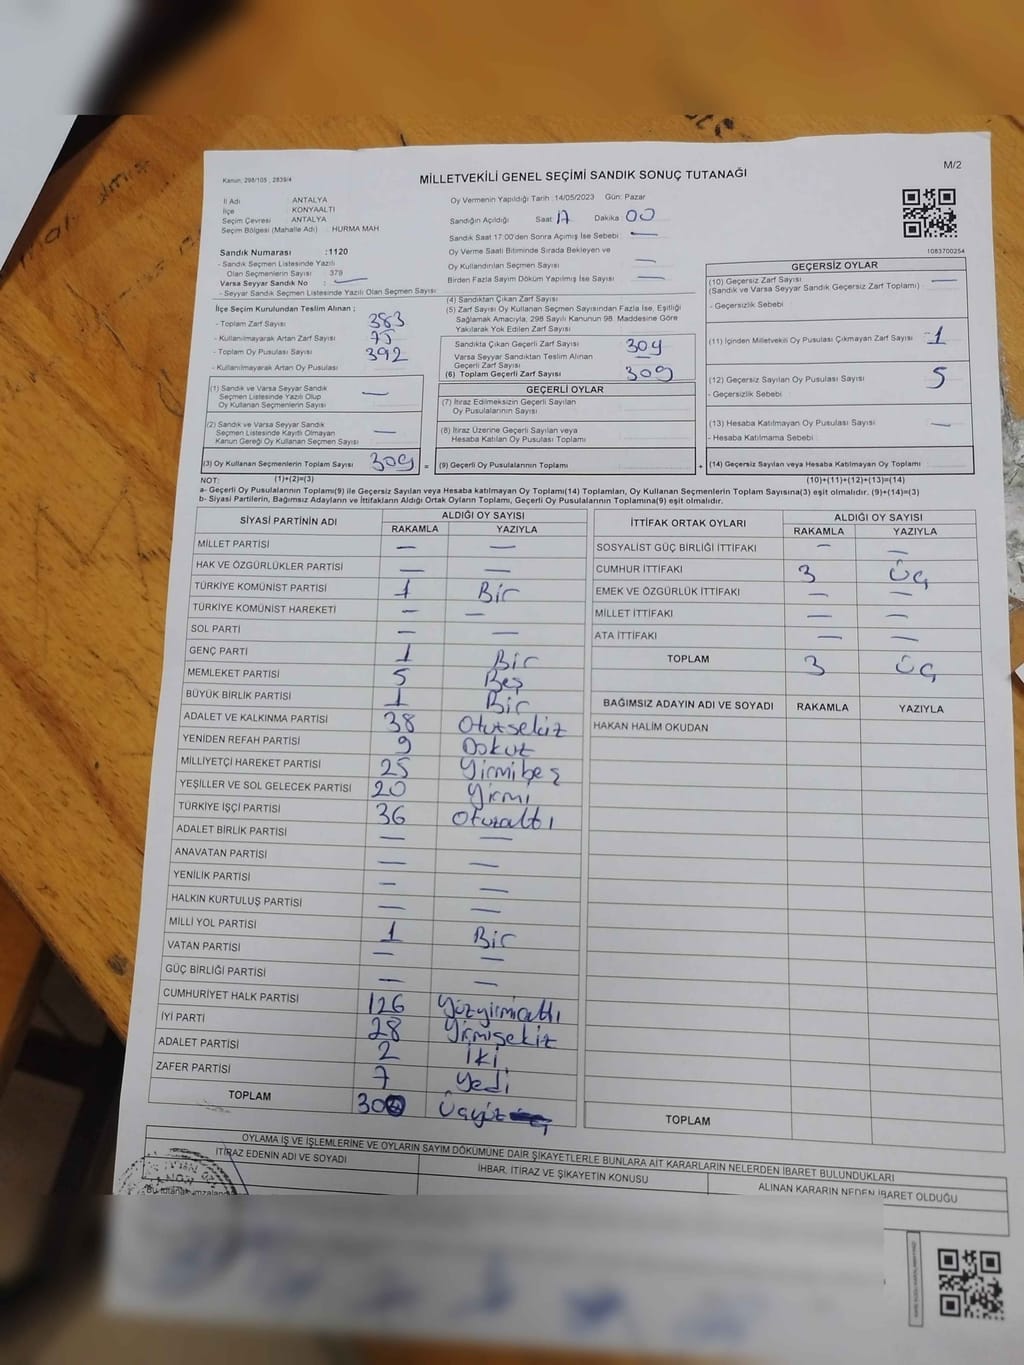 Kanun: 298/105 ; 2839/4
M/2
MİLLETVEKİLİ GENEL SEÇİMİ SANDIK SONUÇ TUTANAĞI
İl Adı : ANTALYA
İlçe : KONYAALTI
Seçim Çevresi : ANTALYA
Seçim Bölgesi (Mahalle Adı) : HURMA MAH
Sandık Numarası :1120
- Sandık Seçmen Listesinde Yazılı
Olan Seçmenlerin Sayısı : 379
Varsa Seyyar Sandık No : —
- Seyyar Sandık Seçmen Listesinde Yazılı Olan Seçmen Sayısı
Oy Vermenin Yapıldığı Tarih : 14/05/2023 Gün: Pazar
Sandığın Açıldığı Saat 17 Dakika 00
Sandık Saat 17:00'den Sonra Açımış İse Sebebi : —
Oy Verme Saati Bitiminde Sırada Bekleyen ve
Oy Kullandırılan Seçmen Sayısı —
Birden Fazla Sayım Döküm Yapılmış İse Sayısı —
1083700254
İlçe Seçim Kurulundan Teslim Alınan ;
- Toplam Zarf Sayısı 383
- Kullanılmayarak Artan Zarf Sayısı 75
- Toplam Oy Pusulası Sayısı 392
- Kullanılmayarak Artan Oy Pusulası
(1) Sandık ve Varsa Seyyar Sandık
Seçmen Listesinde Yazılı Olup
Oy Kullanan Seçmenlerin Sayısı —
(2) Sandık ve Varsa Seyyar Sandık
Seçmen Listesinde Kayıtlı Olmayan
Kanun Gereği Oy Kullanan Seçmen Sayısı —
(3) Oy Kullanan Seçmenlerin Toplam Sayısı 309 =
(1)+(2)=(3)
(4) Sandıktan Çıkan Zarf Sayısı
(5) Zarf Sayısı Oy Kullanan Seçmen Sayısından Fazla İse, Eşitliği
Sağlamak Amacıyla, 298 Sayılı Kanunun 98. Maddesine Göre
Yakılarak Yok Edilen Zarf Sayısı
Sandıkta Çıkan Geçerli Zarf Sayısı 309
Varsa Seyyar Sandıktan Teslim Alınan
Geçerli Zarf Sayısı —
(6) Toplam Geçerli Zarf Sayısı 309
GEÇERLİ OYLAR
(7) İtiraz Edilmeksizin Geçerli Sayılan
Oy Pusulalarının Sayısı
(8) İtiraz Üzerine Geçerli Sayılan veya
Hesaba Katılan Oy Pusulası Toplamı
(9) Geçerli Oy Pusulalarının Toplamı +
GEÇERSİZ OYLAR
(10) Geçersiz Zarf Sayısı —
(Sandık ve Varsa Seyyar Sandık Geçersiz Zarf Toplamı)
- Geçersizlik Sebebi :
(11) İçinden Milletvekili Oy Pusulası Çıkmayan Zarf Sayısı 1
(12) Geçersiz Sayılan Oy Pusulası Sayısı 5
- Geçersizlik Sebebi :
(13) Hesaba Katılmayan Oy Pusulası Sayısı —
- Hesaba Katılmama Sebebi :
(14) Geçersiz Sayılan veya Hesaba Katılmayan Oy Pusulası Toplamı
(10)+(11)+(12)+(13)=(14)
NOT:
a- Geçerli Oy Pusulalarının Toplamı(9) ile Geçersiz Sayılan veya Hesaba katılmayan Oy Toplamı(14) Toplamları, Oy Kullanan Seçmenlerin Toplam Sayısına(3) eşit olmalıdır. (9)+(14)=(3)
b- Siyasi Partilerin, Bağımsız Adayların ve İttifakların Aldığı Ortak Oyların Toplamı, Geçerli Oy Pusulalarının Toplamına(9) eşit olmalıdır.
SİYASİ PARTİNİN ADI ALDIĞI OY SAYISI
RAKAMLA YAZIYLA
MİLLET PARTİSİ — —
HAK VE ÖZGÜRLÜKLER PARTİSİ — —
TÜRKİYE KOMÜNİST PARTİSİ 1 Bir
TÜRKİYE KOMÜNİST HAREKETİ — —
SOL PARTİ — —
GENÇ PARTİ 1 Bir
MEMLEKET PARTİSİ 5 Beş
BÜYÜK BİRLİK PARTİSİ 1 Bir
ADALET VE KALKINMA PARTİSİ 38 Otutsekiz
YENİDEN REFAH PARTİSİ 9 Dokuz
MİLLİYETÇİ HAREKET PARTİSİ 25 Yirmibeş
YEŞİLLER VE SOL GELECEK PARTİSİ 20 Yirmi
TÜRKİYE İŞÇİ PARTİSİ 36 Otuzaltı
ADALET BİRLİK PARTİSİ — —
ANAVATAN PARTİSİ — —
YENİLİK PARTİSİ — —
HALKIN KURTULUŞ PARTİSİ — —
MİLLİ YOL PARTİSİ 1 Bir
VATAN PARTİSİ — —
GÜÇ BİRLİĞİ PARTİSİ — —
CUMHURİYET HALK PARTİSİ 126 Yüzyirmialtı
İYİ PARTİ 28 Yirmisekiz
ADALET PARTİSİ 2 İki
ZAFER PARTİSİ 7 Yedi
TOPLAM Üçyüz
İTTİFAK ORTAK OYLARI ALDIĞI OY SAYISI
RAKAMLA YAZIYLA
SOSYALİST GÜÇ BİRLİĞİ İTTİFAKI — —
CUMHUR İTTİFAKI 3 Üç
EMEK VE ÖZGÜRLÜK İTTİFAKI — —
MİLLET İTTİFAKI — —
ATA İTTİFAKI — —
TOPLAM 3 Üç
BAĞIMSIZ ADAYIN ADI VE SOYADI RAKAMLA YAZIYLA
HAKAN HALİM OKUDAN
TOPLAM
OYLAMA İŞ VE İŞLEMLERİNE VE OYLARIN SAYIM DÖKÜMÜNE DAİR ŞİKAYETLERLE BUNLARA AİT KARARLARIN NELERDEN İBARET BULUNDUKLARI
İTİRAZ EDENİN ADI VE SOYADI İHBAR, İTİRAZ VE ŞİKAYETİN KONUSU ALINAN KARARIN NEDEN İBARET OLDUĞU